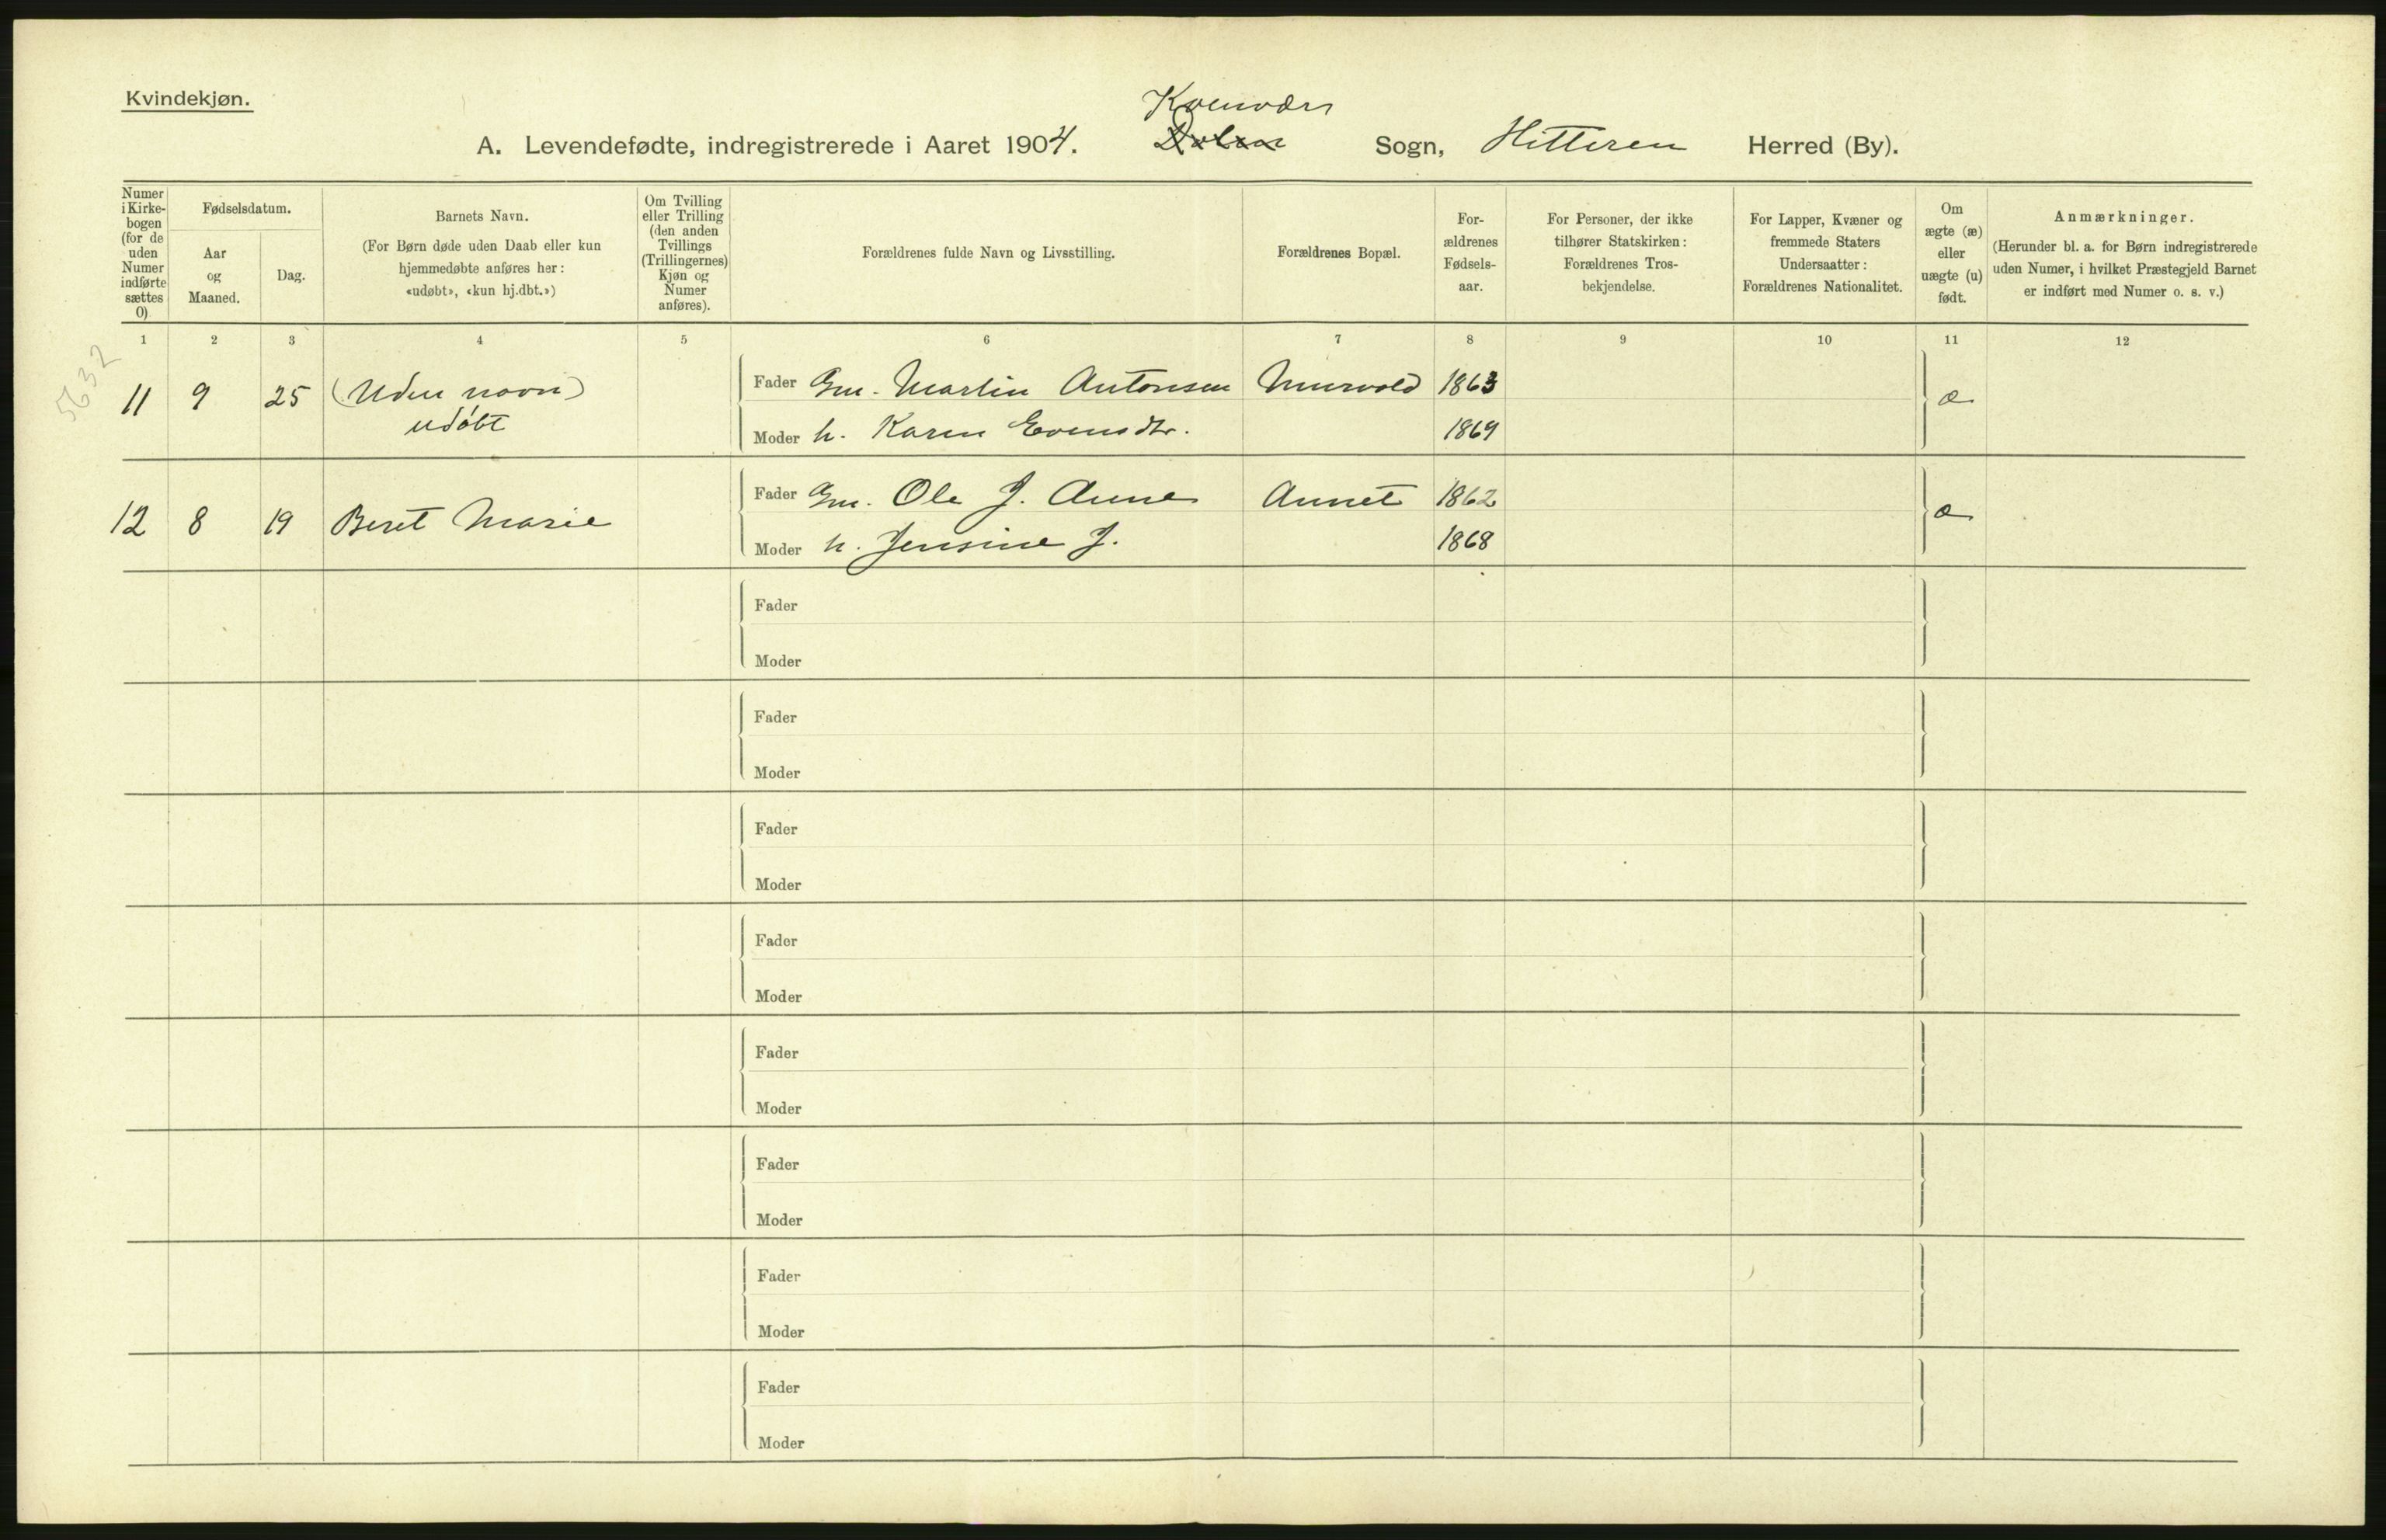 Kvindekjøn.
Kvenvær
A. Levendefødte, indregistrerede i Aaret 1904. Dolm Sogn, Hitteren Herred (By).
Numer i Kirkebogen (for de uden Numer indførte sættes 0)
Fødselsdatum.
Aar og Maaned.
Dag.
Barnets Navn.
(For Børn døde uden Daab eller kun
hjemmedøbte anføres her:
«udøbt», «kun hj.dbt.»)
Om Tvilling
eller Trilling
(den anden
Tvillings
(Trillingernes)
Kjøn og
Numer
anføres).
Forældrenes fulde Navn og Livsstilling.
Forældrenes Bopæl.
For-
ældrenes
Fødsels-
aar.
For Personer, der ikke
tilhører Statskirken:
Forældrenes Tros-
bekjendelse.
For Lapper, Kvæner og
fremmede Staters
Undersaatter:
Forældrenes Nationalitet.
Om
ægte (æ)
eller
uægte (u)
født.
Anmærkninger.
(Herunder bl. a. for Børn indregistrerede
uden Numer, i hvilket Præstegjeld Barnet
er indført med Numer o. s. v.)
1 2 3 4 5 6 7 8 9 10 11 12
5632
11 9 25 (Uden navn) Fader Gm. Martin Antonsen 1863 æ
udøbt Moder h. Karen Evensdtr. 1869
12 8 19 Beret Marie Fader Gm. Ole J. Aune Aunet 1862 æ
Moder h. Jensine J. 1868
Fader
Moder
Fader
Moder
Fader
Moder
Fader
Moder
Fader
Moder
Fader
Moder
Fader
Moder
Fader
Moder